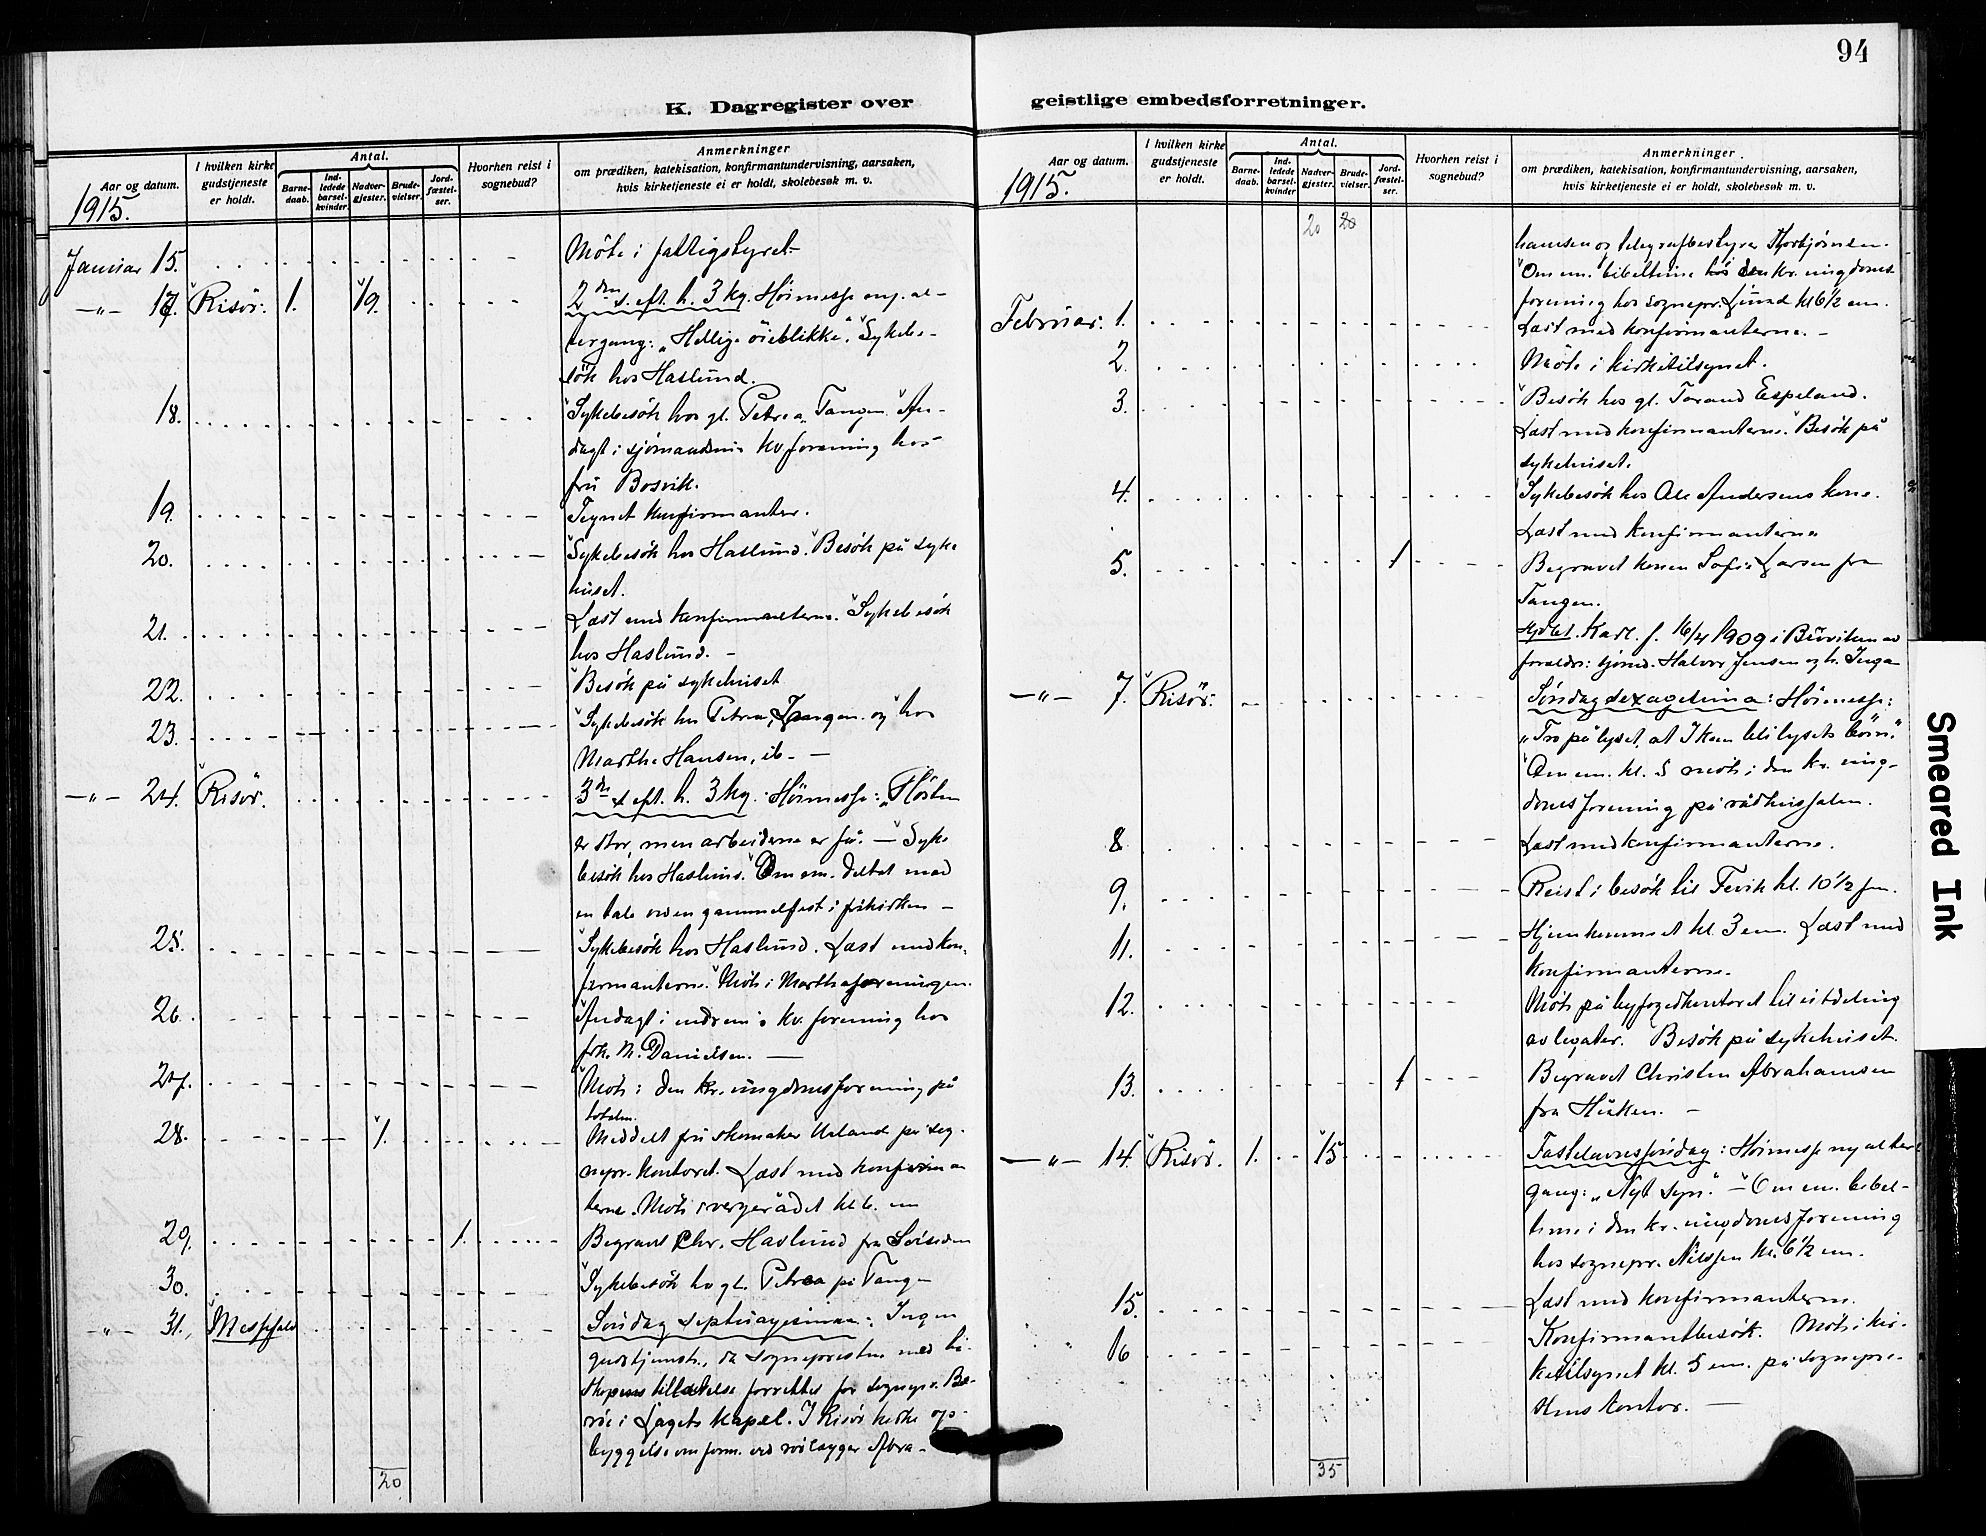 94
K. Dagregister over
geistlige embedsforretninger.
Aar og datum.
I hvilken kirke gudstjeneste er holdt.
Antal.
Barnedaab.
Indledede barselkvinder
Nadvergjester.
Brudevielser.
Jordfæstelser.
Hvorhen reist i sognebud?
Anmerkninger
om prædiken, katekisation, konfirmantundervisning, aarsaken,
hvis kirketjeneste ei er holdt, skolebesøk m. v.
1915.
Januar 15. Møte i fattigstyret.
—"— 17. Risør. 1. 19. 2den s. eft. h. 3 kg. Høimesse m. al-
tergang: „Hellige øieblikke". Sykebe-
søk hos Haslund.
18. Sykebesøk hos gl. Petrea, Tangen. An-
dagt i sjømandsm. kv. forening hos
fru Bosvik.
19. Tegnet konfirmanter.
20. Sykebesøk hos Haslund. Besøk på syke
huset.
21. Læst med konfirmanterne. Sykebesøk
hos Haslund. –
22. Besøk på sykehuset
23. Sykebesøk hos Petrea, Tangen og hos
Marthe Hansen, ib. —
—"— 24. Risør. 3die s. eft. h. 3 kg. Høimesse: „Høsten
er stor, men arbeiderne er få. — Syke
besøk hos Haslund. Om em. deltat med
en tale ved en gammelfest i frikirken –
25. Sykebesøk hos Haslund. Læst med kon-
firmanterne. Møte i Marthaforeningen.
26. Andagt i indrem.s kv. forening hos
frk. M. Danielsen. —
27. Møte i den kr. ungdomsforening på
totalen.
28. 1. Meddelt fru skomaker Urland på sog-
nepr. kontoret. Læst med konfirman
terne. Møte i vergerådet kl. 6. em
29. 1. Begravet Chr. Haslund fra Solsiden
30. Sykebesøk hos gl. Petrea på Tangen
—"— 31. Messefald Søndag septuagesima: Ingen
gudstjeneste, da sognepresten med bi-
skopens tillatelse forrettet for sognepr. Bo-
røe i Laget kapel. I Risør kirke op-
byggelse om form. ved rørlægger Abra-
20
Aar og datum.
I hvilken kirke gudstjeneste er holdt.
Antal.
Barnedaab.
Indledede barselkvinder
Nadvergjester.
Brudevielser.
Jordfæstelser.
Hvorhen reist i sognebud?
Anmerkninger.
om prædiken, katekisation, konfirmantundervisning, aarsaken,
hvis kirketjeneste ei er holdt, skolebesøk m. v.
1915.
20 20
hamsen og telegrafbestyrer Thorbjørnsen.
Om em. bibeltime hos den kr. ungdoms
forening hos sognepr. Lund kl 6½ em.
Februar. 1. Læst med konfirmanterne. –
2. Møte i kirketilsynet.
3. Besøk hos gl. Torand Espeland.
Læst med konfirmanterne. Besøk på
sykehuset.
4. Sykebesøk hos Ole Andersens kone.
Læst med konfirmanterne
5. 1 Begravet konen Sofie Larsen fra
Tangen.
Hjdbt. Karl. f. 16/4 1909 i Buviken av
foreldre: sjømd. Halvor Jensen og h. Inga
—"— 7. Risør. Søndag sexagesima: Høimesse:
„Tro på lyset, at I kan bli lysets børn."
Om em. kl. 5 møte i den kr. ung-
domsforening på rådhussalen.
8. Læst med konfirmanterne.
9. Reist i besøk til Fevik kl. 10½ fm.
11. Hjemkommet kl. 3 em. Læst med
konfirmanterne.
12. Møte på byfogedkontoret til utdeling
av legater. Besøk på sykehuset.
13. 1 Begravet Christen Abrahamsen
fra Hiaken. –
—"— 14. Risør. 1. 15 Fastelavnssøndag: Høimesse m. alter
gang: „Nyt syn." — Om em. bibel-
time i den kr. ungdomsforening
hos sognepr. Nilssen kl. 6½ em.
15. Læst med konfirmanterne.
16 Konfirmantbesøk. Møte i kir-
ketilsynet kl. 5 em. på sognepre-
stens kontor. —
35
Smeared Ink